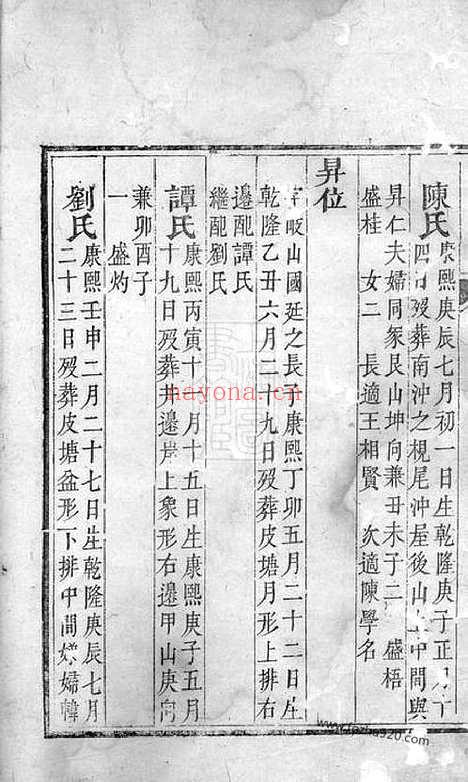 陳氏
康熙庚辰七月初一日生乾隆庚子正月十
四日歿葬南沖之梘尾沖屋後山上中間與
昇仁夫婦同冢艮山坤向兼丑未子二 盛梧
盛桂 女二 長適王相賢 次適陳學名
昇位
岐山國廷之長子康熙丁卯五月二十二日生
乾隆乙丑六月二十九日歿葬皮塘月形上排右
邊配譚氏
繼配劉氏
譚氏
康熙丙寅十 月十五日生康熙庚子五月
十九日歿葬井邊岸上象形右邊甲山庚向
兼卯酉子
一 盛灼
劉氏
康熙壬申二月二十七日生乾隆庚辰七月
二十三日歿葬皮塘盆形下排中間 婦韓
nayona.cn